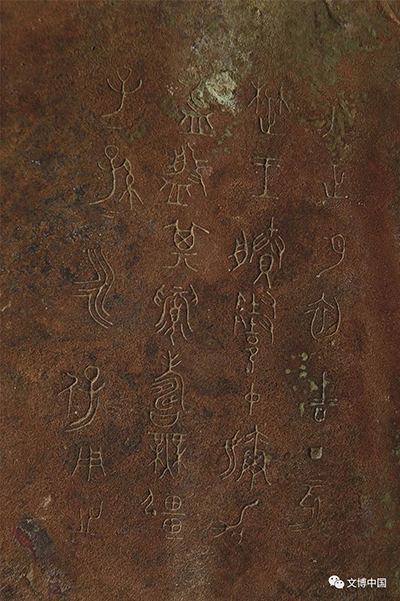 正月初吉丁亥
楚王賸隨仲嬭加
飤繁其眉壽無疆
子孫永寶用之
文博中国